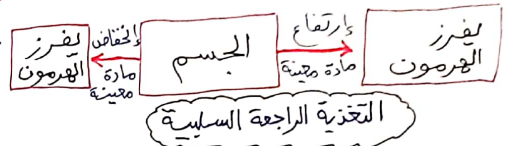 يفرز
الهرمون
إرتفاع
مادة معينة
الجسم
إنخفاض
مادة
معينة
يفرز
الهرمون
التغذية الراجعة السلبية